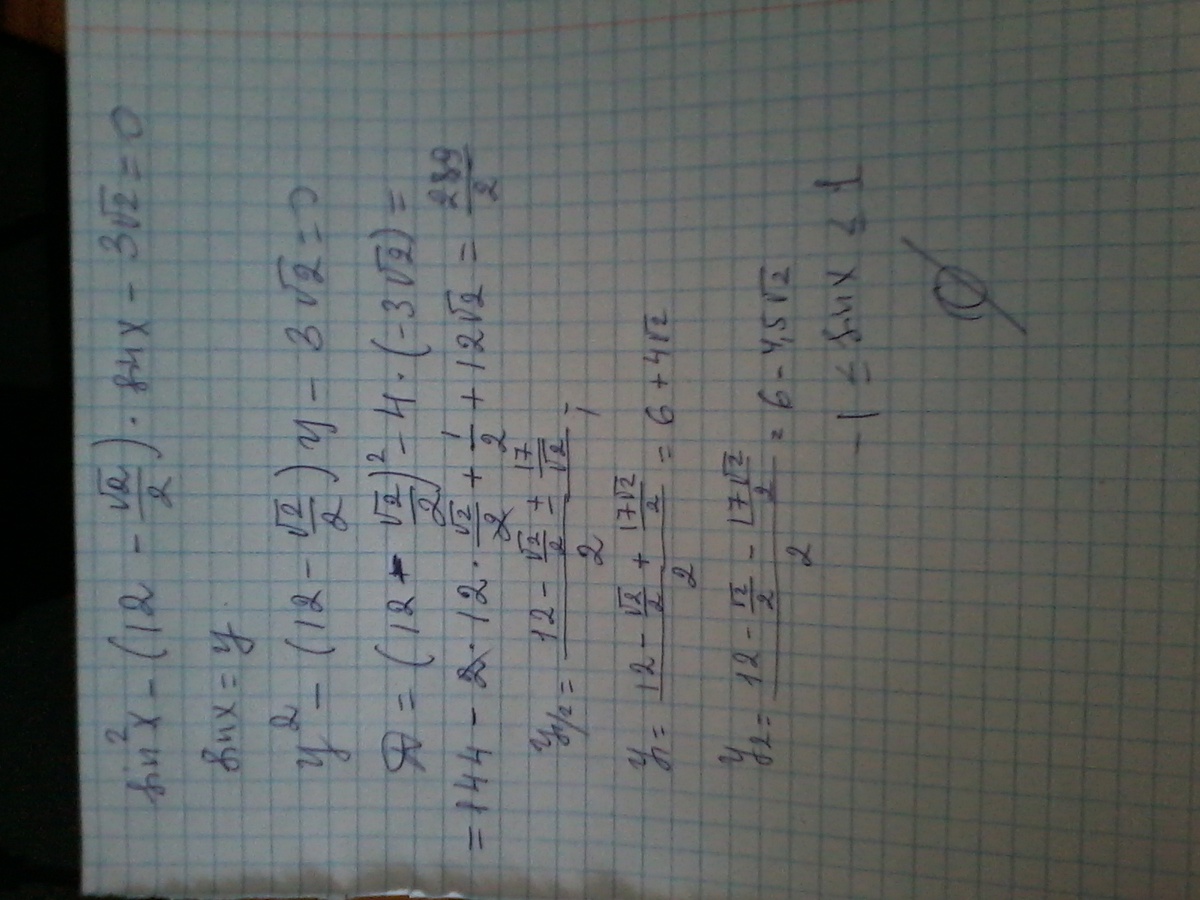 sin²x - (12 - √2/2) · sin x - 3√2 = 0
sin x = y.
y² - (12 - √2/2) y - 3√2 = 0
D = (12 - √2/2)² - 4 · (-3√2) =
= 144 - 2 · 12 · √2/2 + 1/2 + 12√2 = 289/2
y₁/₂ = (12 - √2/2 ± 17/√2)/2 ;
y₁ = (12 - √2/2 + 17√2/2)/2 = 6 + 4√2
y₂ = (12 - √2/2 - 17√2/2)/2 = 6 - 4,5√2
-1 ≤ sin x ≤ 1
∅